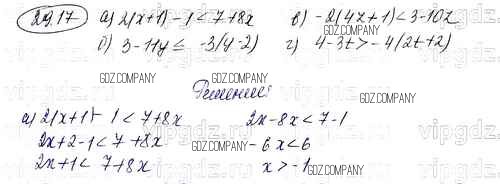 29.17 а) 2(x+1) - 1 < 7+8x в) -2(4z+1) < 3-10z
б) 3-11y ≤ -3(y-2) г) 4-3t > -4(2t+2)
GDZ.COMPANY GDZ.COMPANY
Решение
GDZ.COMPANY
а) 2(x+1) - 1 < 7+8x 2x-8x < 7-1
2x+2-1 < 7+8x -6x < 6
2x+1 < 7+8x x > -1
GDZ.COMPANY GDZ.COMPANY
vipgdz.ru